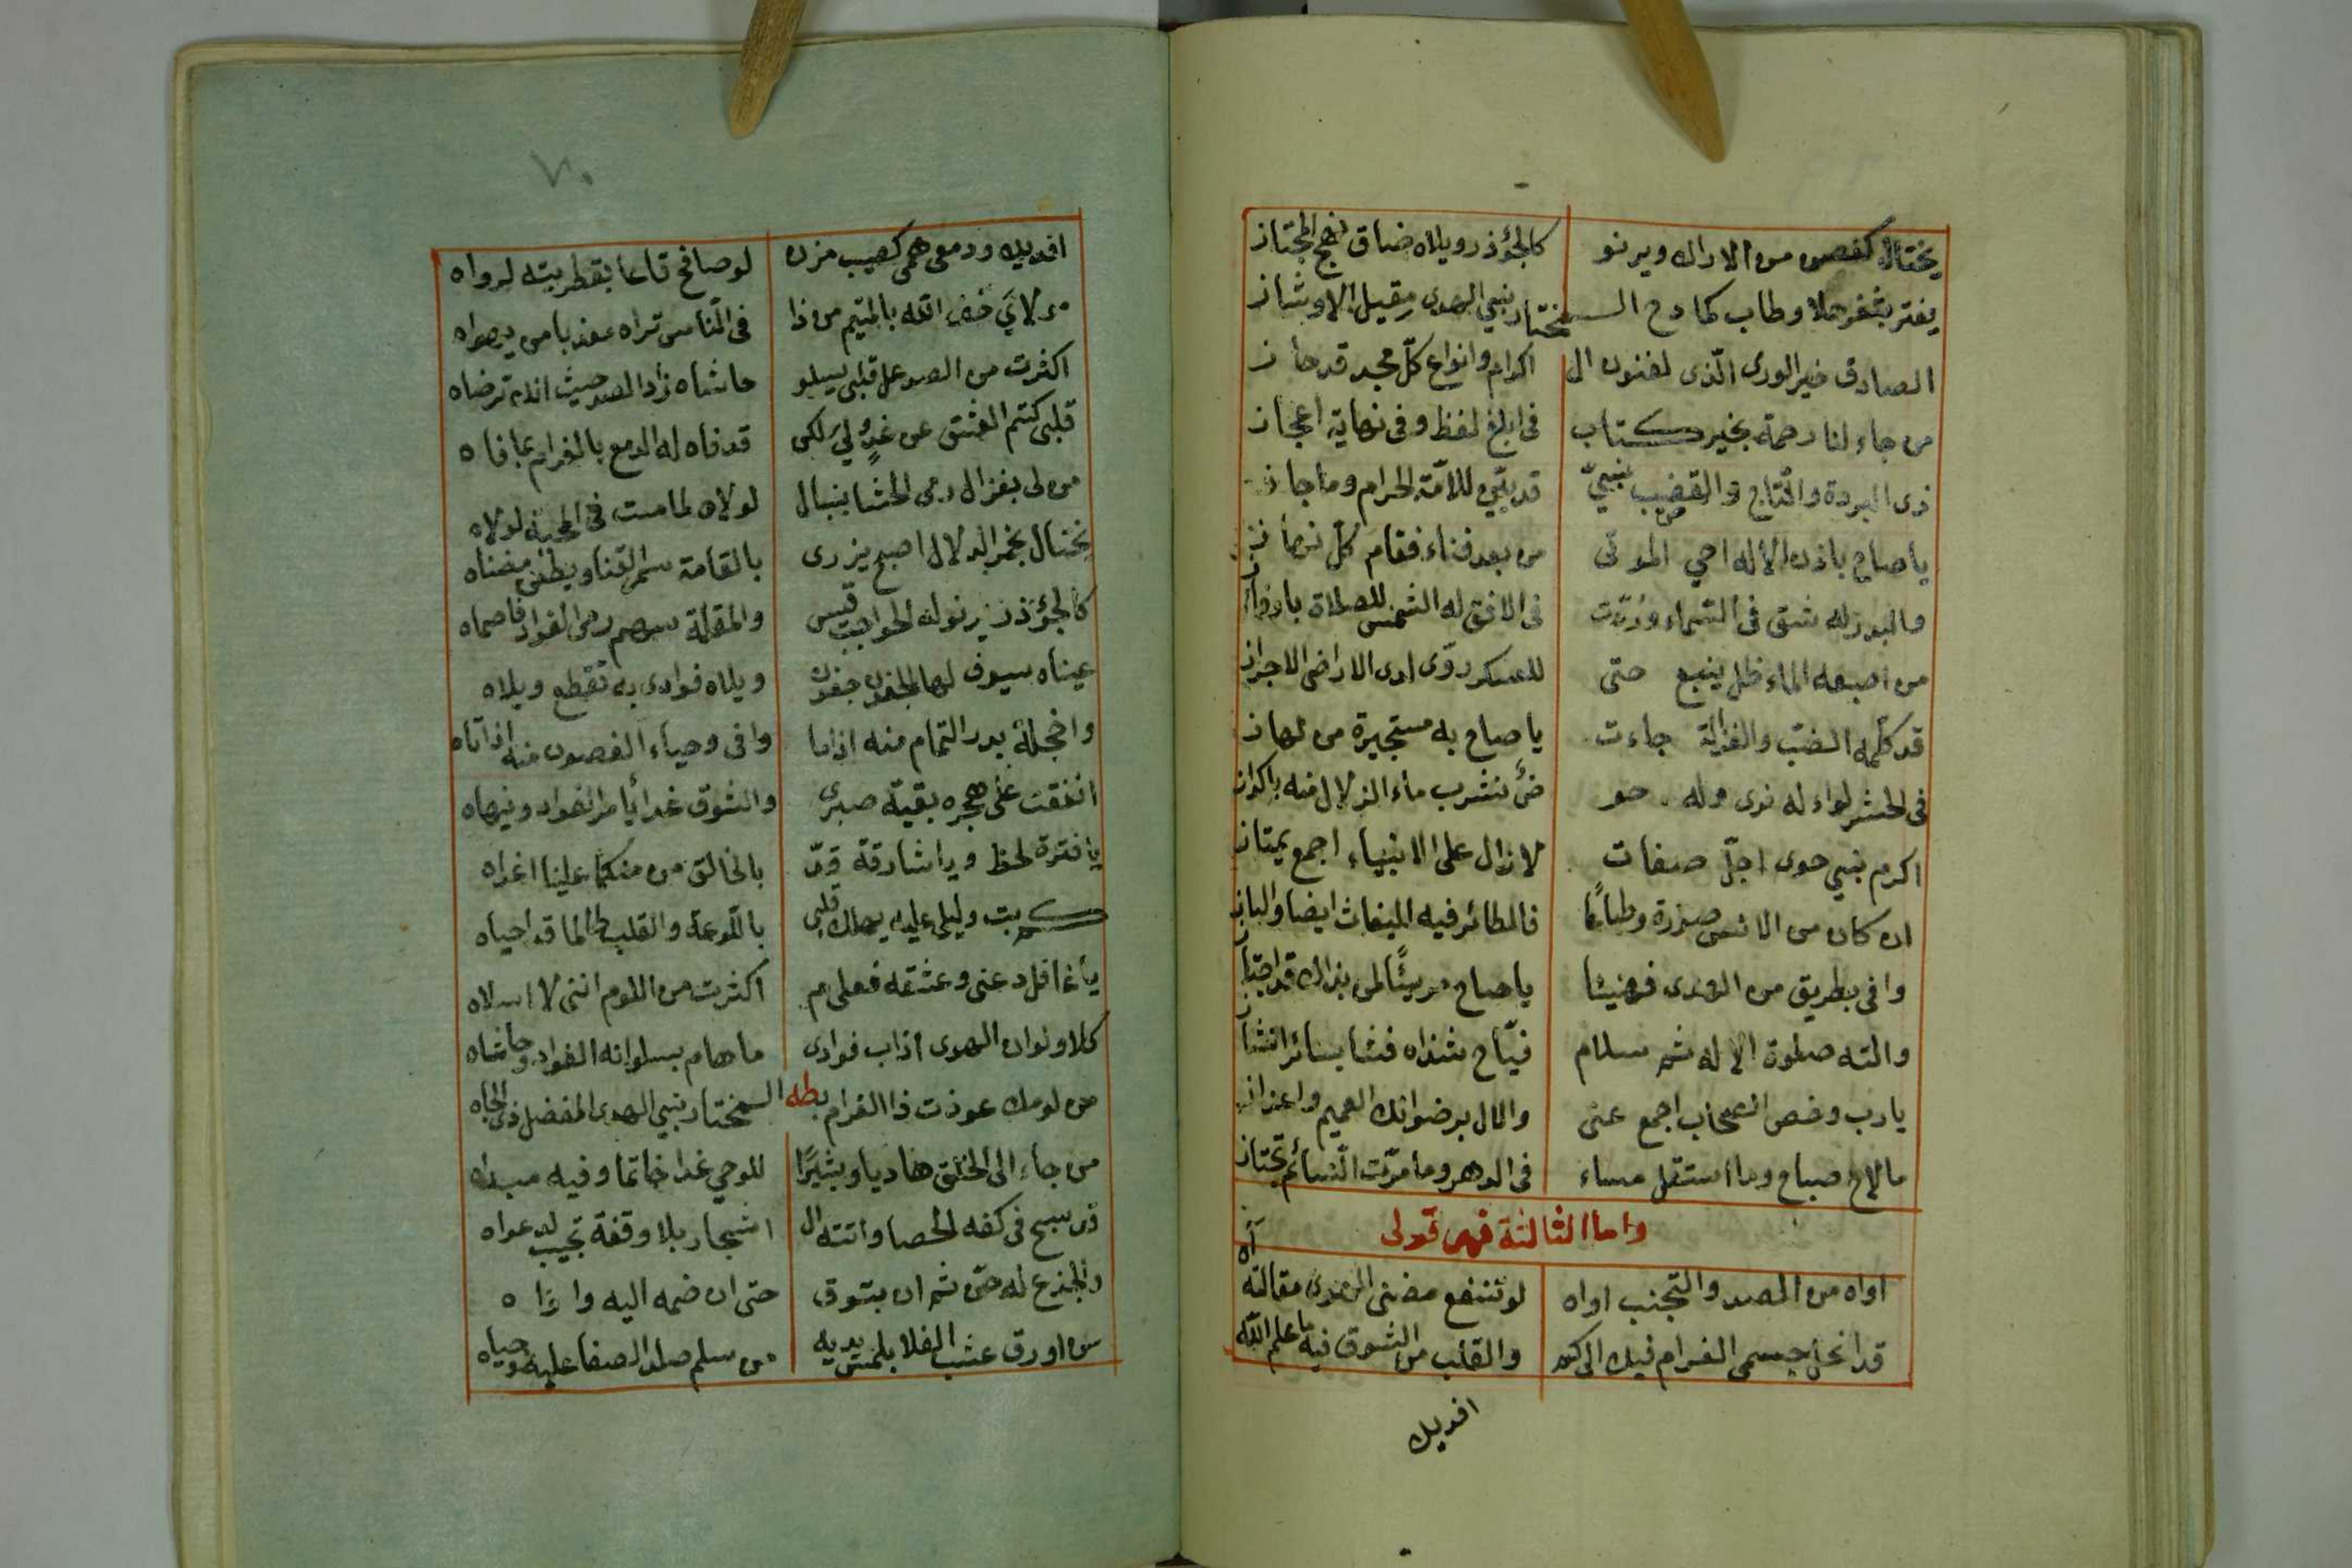 يختال كغصن من الاراك ويرنو كالجؤذر ويلاه ضاق نهج المجتاز
يفتر بثغر حلا وطاب كما دح المختار نبي الهدى مقيل الاوشاز
الصادق خير الورى الذى لفنون ال اكرام وانواع كلّ مجد قد حاز
من جاء لنا رحمة بخير كتاب فى ابلغ لفظ وفى نهاية اعجاز
ذى البردة والتاج والقضيب نبيّ قد بيّن للامّة الحرام وما جاز
يا صاح باذن الاله احي الموتى من بعد فناء فقام كلّ
والبدر له شق فى السماء وردّت فى الافق له الشمس للصلاة
من اصبعه الماء ظل ينبع حتى للعسكر روّى لدى الاراضى الاجراز
قد كلّمه الضبّ والغزالة جاءت يا صاح به مستجيرة من
فى الحشر لواء له نرى وله حو ضٌ نشرب ماء الزلال منه باكواز
اكرم بنبي حوى اجلّ صفات لا زال على الانبياء اجمع يمتاز
ان كان من الانس وطباعًا فالطائر فيه ايضا والباز
وافى بطريق من الهدى فهنيئا يا صاح مريئًا لمن بذاك قد اجتاز
والته صلوة الاله ثم سلام فيّاح شذاه فشا بسائر
يا رب وخص الصحاب اجمع عنى والال برضوانك العميم واعزاز
ما لاح صباح وما استقل مساء فى الدهر وما مرّت النسائم تجتاز
واما الثالثة فهى قولى
اواه من الصد والتجنب اواه لو تنفع مضنى الهوى مقالته آه
قد انحل جسمى الغرام فيك الى كم والقلب من الشوق فيه ما علم الله
افديك
٧٠
افديك ودمعى همى كصيب مزن لو صافح قاعا بقطريته لرواه
مولاي خف الله بالمتيم من ذا فى الناس تراه معذبا من يهواه
اكثرت من الصد عل قلبى يسلو حاشاه زد الصد حيث انت ترضاه
قلبى كتم العشق عن لكن قد فاه له الدمع بالغرام بما فاه
من لى بغزال رمى الحشا بنبال لولاه لما مت فى المحبة لولاه
يختال بخمر الدلال اصبح يزرى بالقامة سمر القنا ويطفى مضناه
كالجؤذر يرنو له الحواجب قيس والمقلة سهم رمى الفواد فاصماه
عيناه سيوف لها الجفون جفون ويلاه فوادى به تقطع ويلاه
واخجلة بدر التمام منه اذا ما وافى وحياء الغصون منه اذا تاه
انفقت على هجره بقية صبرى والشوق غدا يامر الفواد وينهاه
يا فترة لحظ ويا رشاقة قدّ بالخالق من منكما علينا اغراه
كم بت وليلى عليه يهلك قلبى باللوعة والقلب طالما قد احياه
يا غافل دعنى وعشقه فعلى م اكثرت من اللوم اننى لا اسلاه
كلا ولوان الهوى اذاب فوادى ما هام بسلوانه الفواد وحاشاه
من لومك عوذت ذا الغرام بطه المختار نبي الهدى المفضل ذى الجاه
من جاء الى الخلق هاديا وبشيرًا للوحي غدا خاتما وفيه مبداه
من سبح فى كفه الحصا واتته ال اشجار بلا وقفة تجيب لدعواه
والجذع له حنّ ثم ان بشوق حتى ان ضمه اليه
من اورق عشب الفلا بلمس يديه من سلم صلد الصفا عليه وحياه